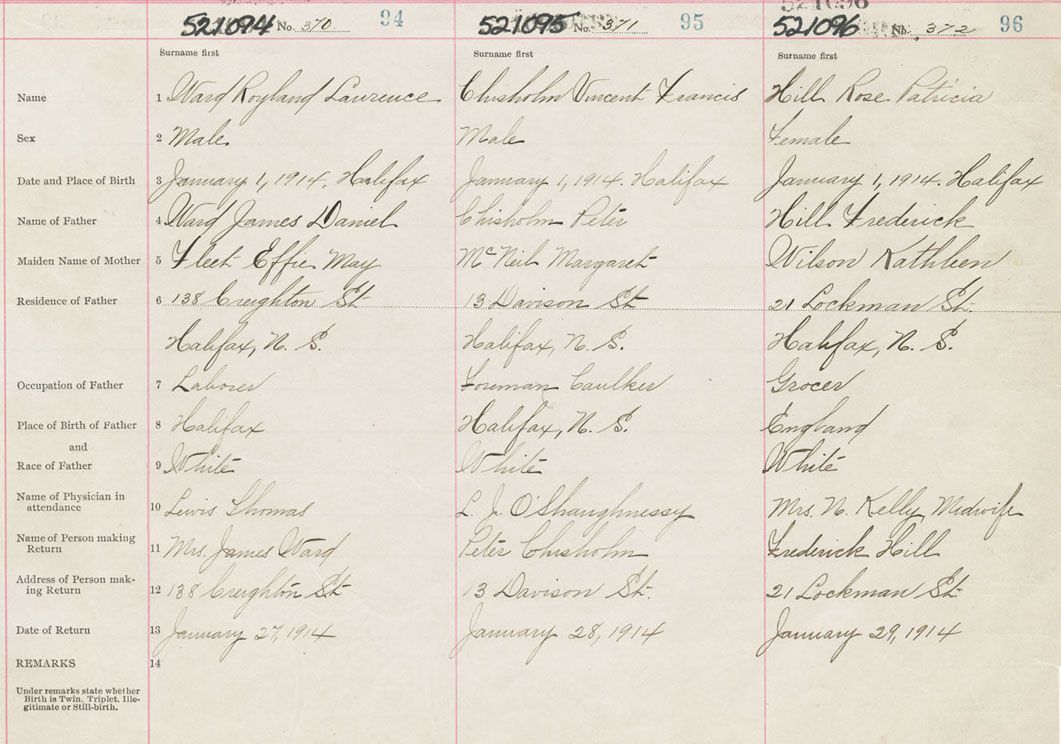 521096
521094 No. 370 94 521095 No. 371 95 521096 No. 372 96
Surname first Surname first Surname first
Name 1 Ward Royland Lawrence Chisholm Vincent Francis Hill Rose Patricia
Sex 2 Male Male Female
Date and Place of Birth 3 January 1, 1914. Halifax January 1, 1914. Halifax January 1, 1914. Halifax
Name of Father 4 Ward James Daniel Chisholm Peter Hill Frederick
Maiden Name of Mother 5 Fleet Effie May McNeil Margaret Wilson Kathleen
Residence of Father 6 138 Creighton St 13 Davison St 21 Lockman St.
Halifax, N. S. Halifax, N. S. Halifax, N. S.
Occupation of Father 7 Laborer Foreman Caulker Grocer
Place of Birth of Father 8 Halifax Halifax, N. S. England
and
Race of Father 9 White White White
Name of Physician in
attendance 10 Lewis Thomas L. J. O'Shaughnessy Mrs. N. Kelly Midwife
Name of Person making
Return 11 Mrs. James Ward Peter Chisholm Frederick Hill
Address of Person mak-
ing Return 12 138 Creighton St 13 Davison St. 21 Lockman St
Date of Return 13 January 27, 1914 January 28, 1914 January 29, 1914
REMARKS 14
Under remarks state whether
Birth is Twin. Triplet, Ille-
gitimate or Still-birth.